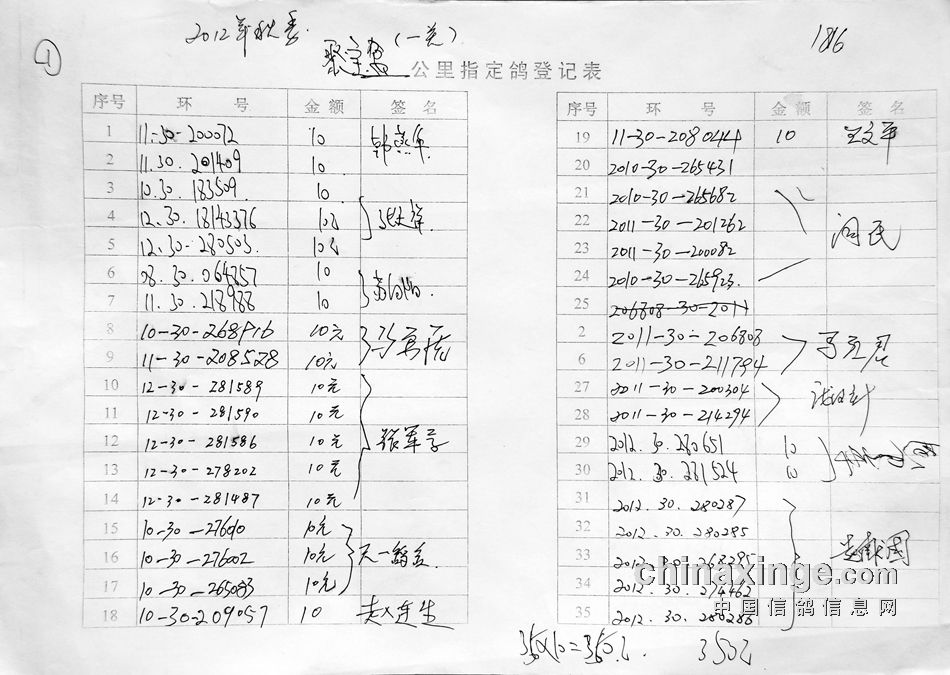 2012年秋季
(一关)
186
1
公里指定鸽登记表
序号 环 号 金额 签名
1 11-30-200072 10
2 11.30.201409 10
3 10.30.183509 10
4 12.30.18143376 10元
5 12.30-280503. 10元
6 08.30.064857 10
7 11.30.218988 10
8 10-30-268916 10元
9 11-30-208528 10元
10 12-30-281589 10元
11 12-30-281590 10元
12 12-30-281586 10元 张军
13 12-30-278202 10元
14 12-30-281487 10元
15 10-30-27600 10元
16 10-30-276002 10元 天一
17 10-30-265083 10元
18 10-30-209057 10 赵连生
序号 环 号 金额 签名
19 11-30-2080444 10 王文平
20 2010-30-265431
21 2010-30-265682
22 2011-30-201262 闫民
23 2011-30-200082
24 2010-30-265923.
25 206808-30-2011
2 2011-30-206808
6 2011-30-211794
27 2011-30-200304
28 2011-30-214294
29 2012.30.280651 10
30 2012.30.281524 10
31 2012.30.280287
32 2012.30.280285
33 2012.30.268295
34 2012.30.274462
35 2012.30.280286
chinaxinge.com
中国信鸽信息网
35×10=350元. 350元